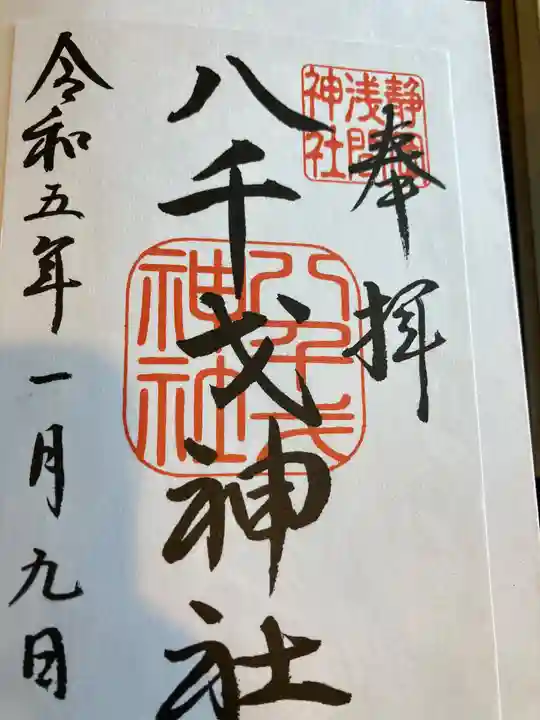 奉拝
静岡
浅間
神社
八千戈神社
八千戈
神社
令和五年一月九日